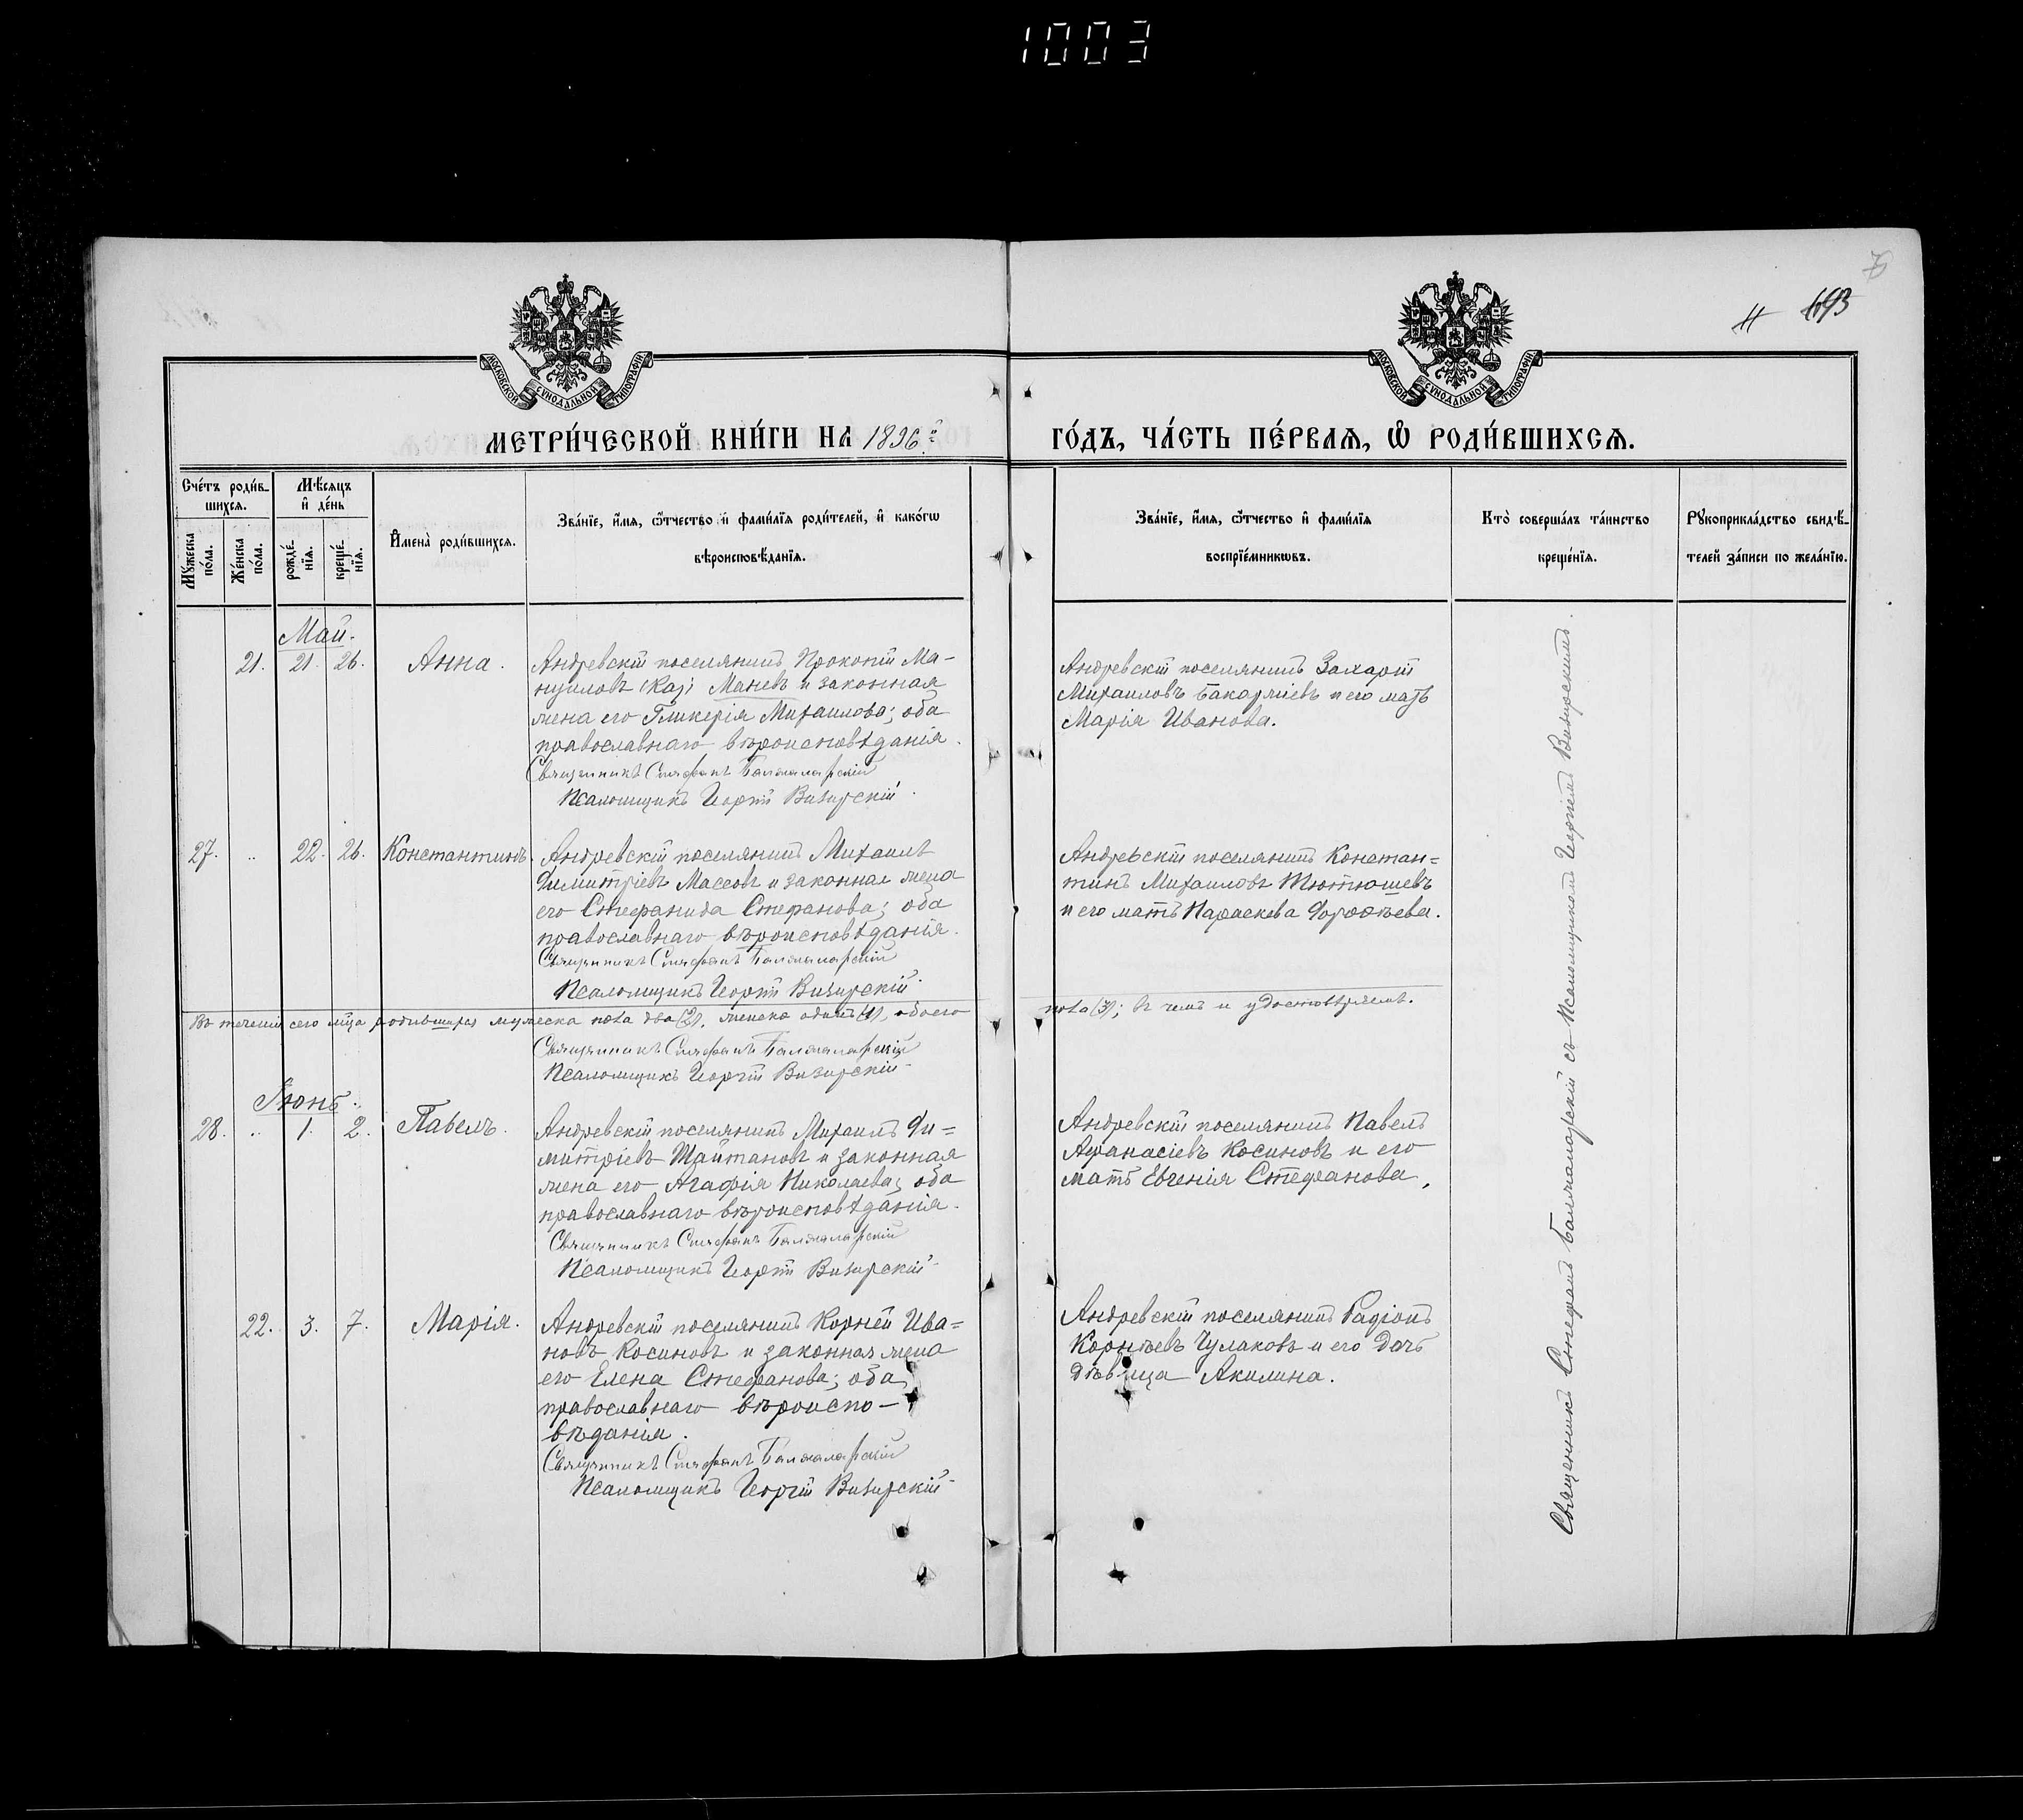 1003
11 693
МОСКОВСКОЙ СѴНОДАЛЬНОЙ ТИПОГРАФІИ
МОСКОВСКОЙ СѴНОДАЛЬНОЙ ТИПОГРАФІИ
МЕТРИ́ЧЕСКОЙ КНИ́ГИ НА 1896 й
ГО́ДЪ, ЧА́СТЬ ПЕ́РВАЯ, Ѡ҆ РОДИ́ВШИХСѦ.
Сче́тъ роди́в-
шихся.
Мѣсяцъ
и҆ де́нь
Мꙋ́жеска
по́ла.
Же́нска
по́ла.
рожде́-
нїя.
креще́-
нїя.
И҆мена̀ роди́вшихся.
Зва́нїе, и҆́мя, ѻ҆́тчество и҆ фами́лїя роди́телей, и҆ како́гѡ
вѣроисповѣ́данїя.
Зва́нїе, и҆́мя, ѻ҆́тчество и҆ фами́лїя
воспрїе́мникѡвъ.
Кто̀ соверша́лъ та́инство
креще́нїя.
Рꙋкоприкла́дство свидѣ́-
телей за́писи по жела́нїю.
Май.
21. 21. 26. Анна.
Андревскій поселянинъ Прокопій Ма-
нуиловъ (Каз) Маневъ и законная
жена его Гликерія Михаилова; оба
православнаго вѣроисповѣданія.
Священникъ Стефанъ Балжаларскій
Псаломщикъ Георгій Визирскій.
Андревскій поселянинъ Захарій
Михаиловъ Бакаржіевъ и его мать
Марія Иванова.
27. „ 22. 26. Константинъ.
Андревскій поселянинъ Михаилъ
Димитріевъ Массовъ и законная жена
его Стефанида Стефанова; оба
православнаго вѣроисповѣданія.
Священникъ Стефанъ Балжаларскій
Псаломщикъ Георгій Визирскій.
Андревскій поселянинъ Констан=
тинъ Михаиловъ Тютюшевъ
и его мать Параскева Дорофѣева.
Въ теченіи сего мѣсца родившихся мужеска пола два (2), женска одинъ (1), обоего
пола (3); въ чемъ и удостовѣряемъ.
Священникъ Стефанъ Балжаларскій
Псаломщикъ Георгій Визирскій
Іюнь.
28. „ 1. 2. Павелъ.
Андревскій поселянинъ Михаилъ Ди=
митріевъ Шайтановъ и законная
жена его Агафія Николаева; оба
православнаго вѣроисповѣданія.
Священникъ Стефанъ Балжаларскій
Псаломщикъ Георгій Визирскій
Андревскій поселянинъ Павелъ
Афанасіевъ Косиновъ и его
мать Евгенія Стефанова.
22. 3. 7. Марія.
Андревскій поселянинъ Корней Ива=
новъ Косиновъ и законная жена
его Елена Стефанова; оба
православнаго вѣроиспо-
вѣданія.
Священникъ Стефанъ Балжаларскій
Псаломщикъ Георгій Визирскій
Андревскій поселянинъ Радіонъ
Корнѣевъ Чулаковъ и его дочь
дѣвица Акилина.
Священникъ Стефанъ Балжаларскій съ Псаломщикомъ Георгіемъ Визирскимъ.